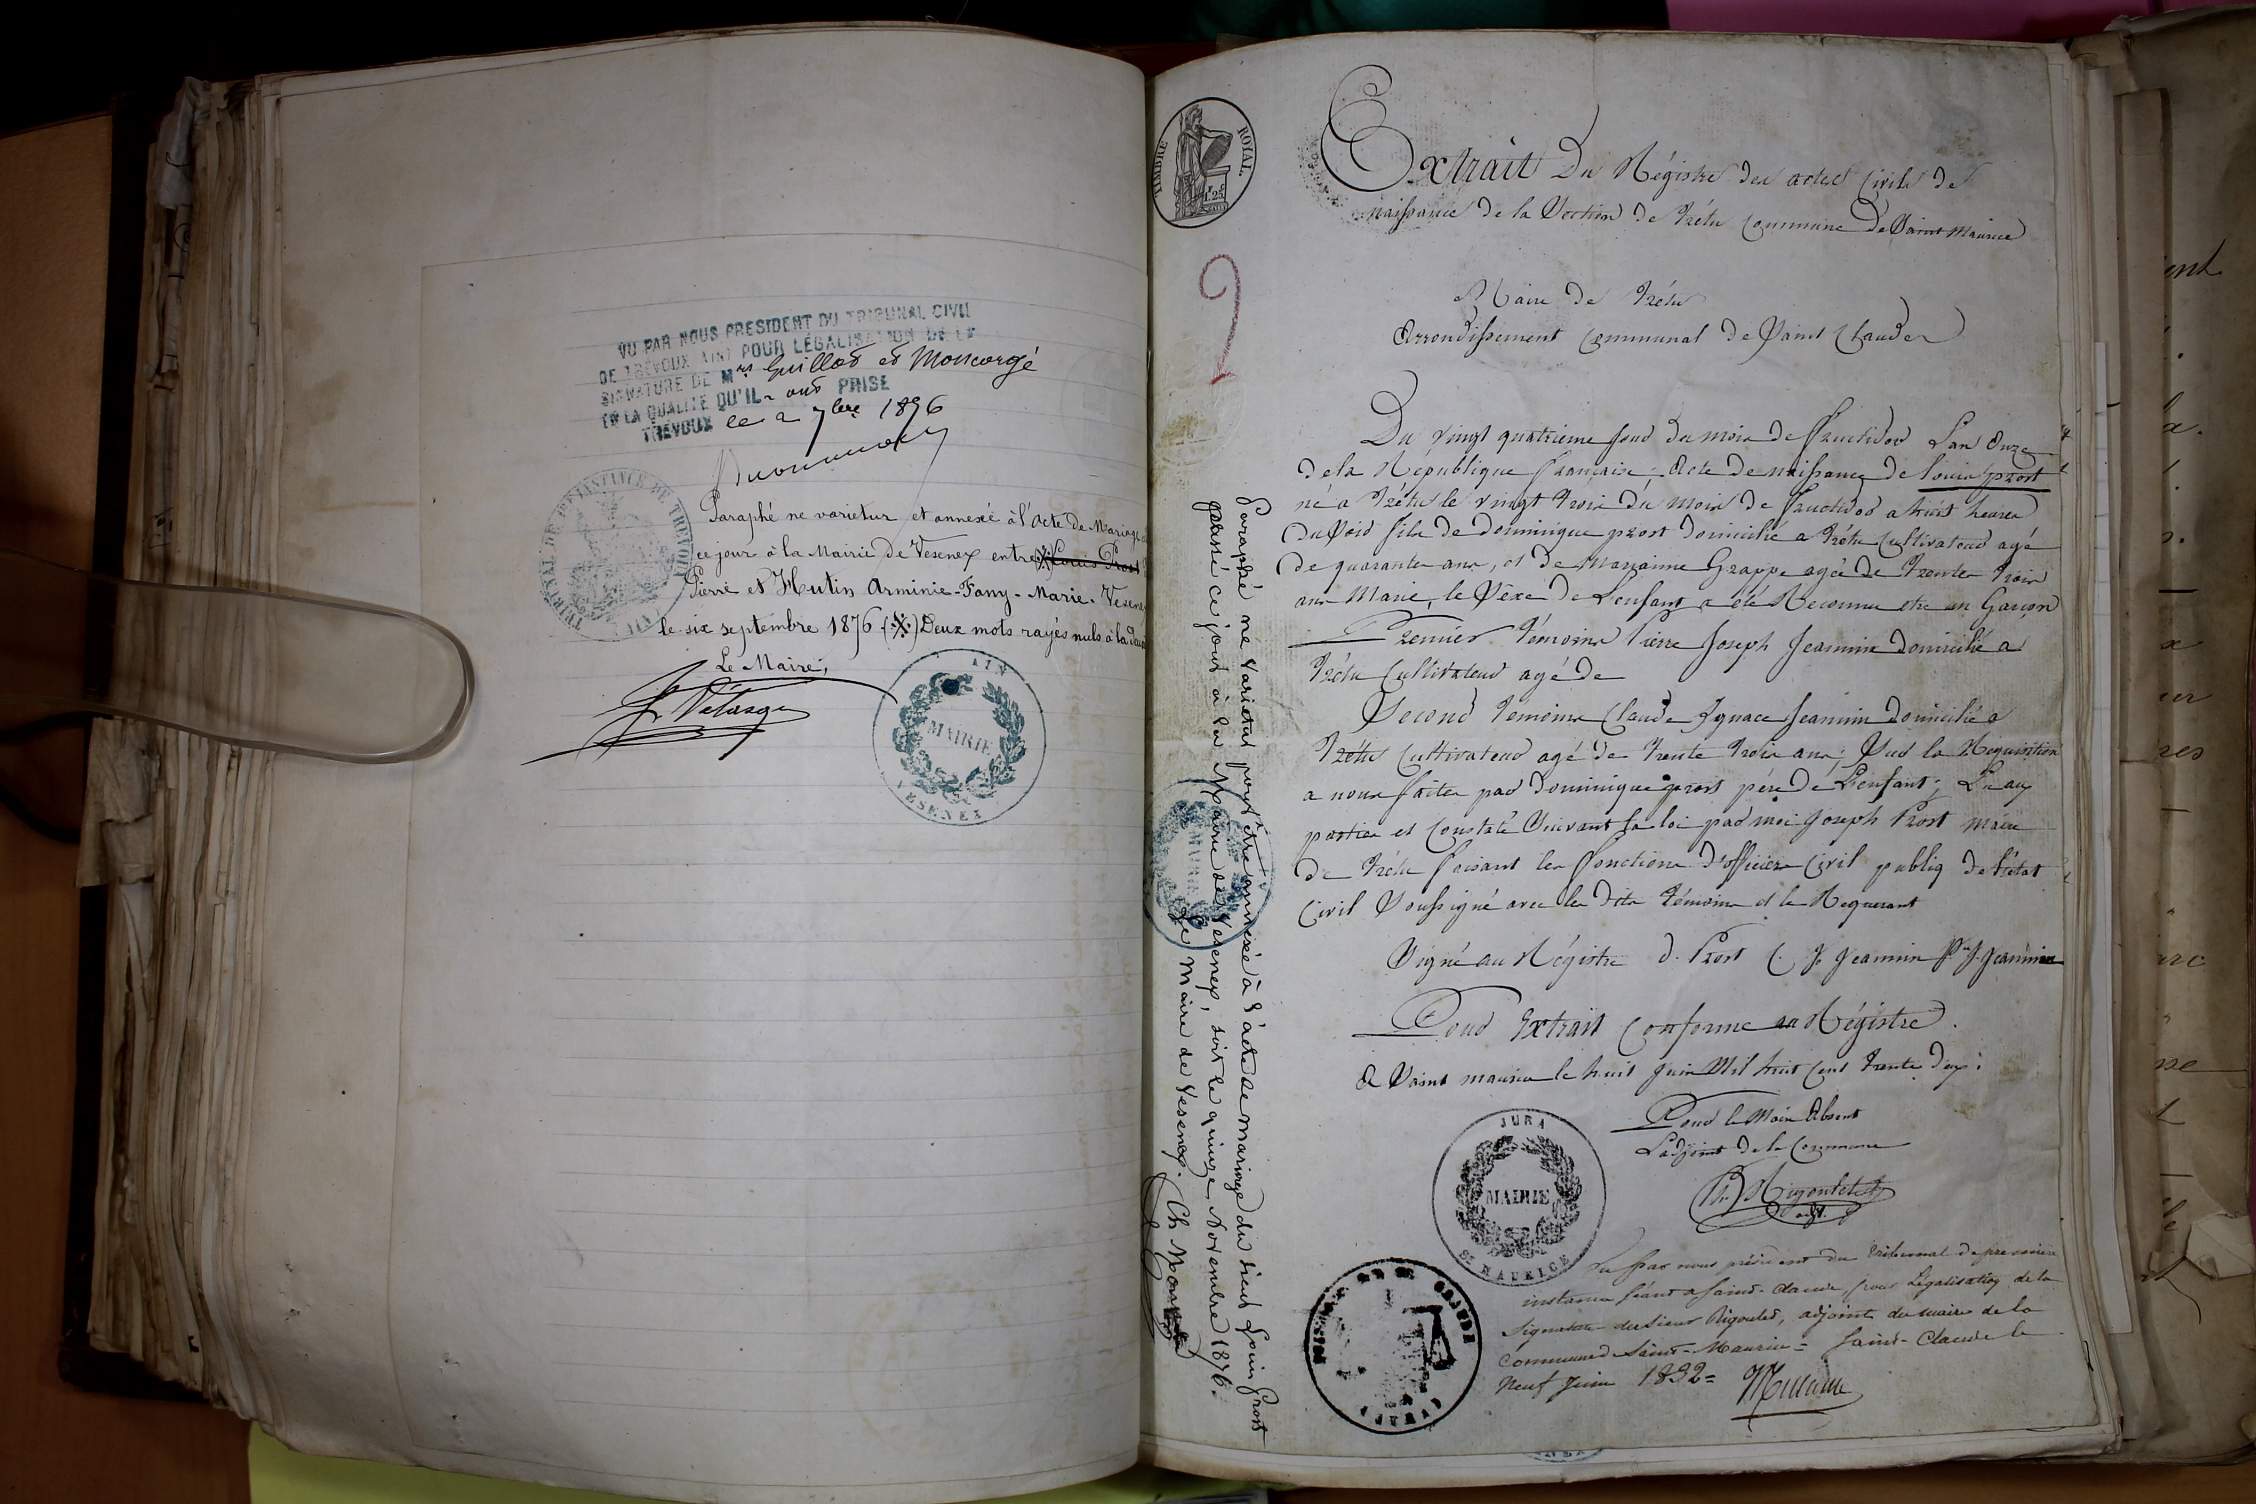 VU PAR NOUS PRESIDENT DU TRIBUNAL CIVIL
DE TREVOUX AIN) POUR LÉGALISATION DE LA
SIGNATURE DE Mrs Guillot et Moncorgé
EN LA QUALITÉ QU'ILs ont PRISE
TREVOUX le 2 7bre 1876
TRIBUNAL DE 1ère INSTANCE DE TREVOUX
Paraphé ne varietur et annexé à l'acte de Mariage
ce jour à la Mairie de Vesenex entre (※) Louis Prost
Pierre et Hutin Arminie-Fany-Marie. Vesenex
le six septembre 1876 (※) Deux mots rayés nuls à la
Le Maire,
AIN
MAIRIE
VESENEX
TIMBRE ROYAL
1f.25c
Extrait Du Régistre des actes Civils de
naissance de la Section de Trétu Commune De Saint Maurice
Maire de Trétu
Arrondissement Communal de Saint Claude
Du vingt quatrieme jour du mois de fructidor Lan Onze
de la République française; Acte de naissance de louis prost
né a Trétu le vingt trois du mois de fructidor a huit heures
Du soir fils de dominique prost domicilié a Trétu Cultivateur agé
de quarante ans, et de Marianne Grappe agée de trente trois
ans Marié, le Sexe de L'enfant a été Reconnu etre un Garçon
Premier témoins Pierre Joseph Jeannin domicilié a
Trétu Cultivateur agé de
Second temoins Claude Ignace Jeannin domicilié a
Trétu Cultivateur agé de trente trois ans; Sur la Requisition
a nous faites par Dominique prost pére de L'enfant; Lu aux
parties et Constaté Suivant la loi par moi Joseph Prost maire
de Trétu faisant les fonctions d'officier Civil publiq de l'état
Civil Soussigné avec les dits témoins et le Requerant
Signé au Régistre D. Prost C. J. Jeannin P.re J. Jeannin
Pour Extrait Conforme au Régistre.
A Saint maurice le huit Juin Mil huit Cent trente deux:
Pour le Maire Absent
Ladjoint de la Commune
Rigoulet
adjt.
JURA
MAIRIE
St. MAURICE
Vu par nous président du tribunal de premiere
instance séant a Saint-Claude, pour Légalisation de la
Signature du Sieur Rigoulet, adjoint du maire de la
Commune de Saint-Maurice = Saint-Claude le
Neuf Juin 1832 =
Paraphé ne varietur pour être annexé à l'acte de mariage du sieur Louis Prost
passé ce jour à la Mairie de Vesenex, soit le quinze Novembre 1876.
Le Maire de Vesenex.
MAIRIE